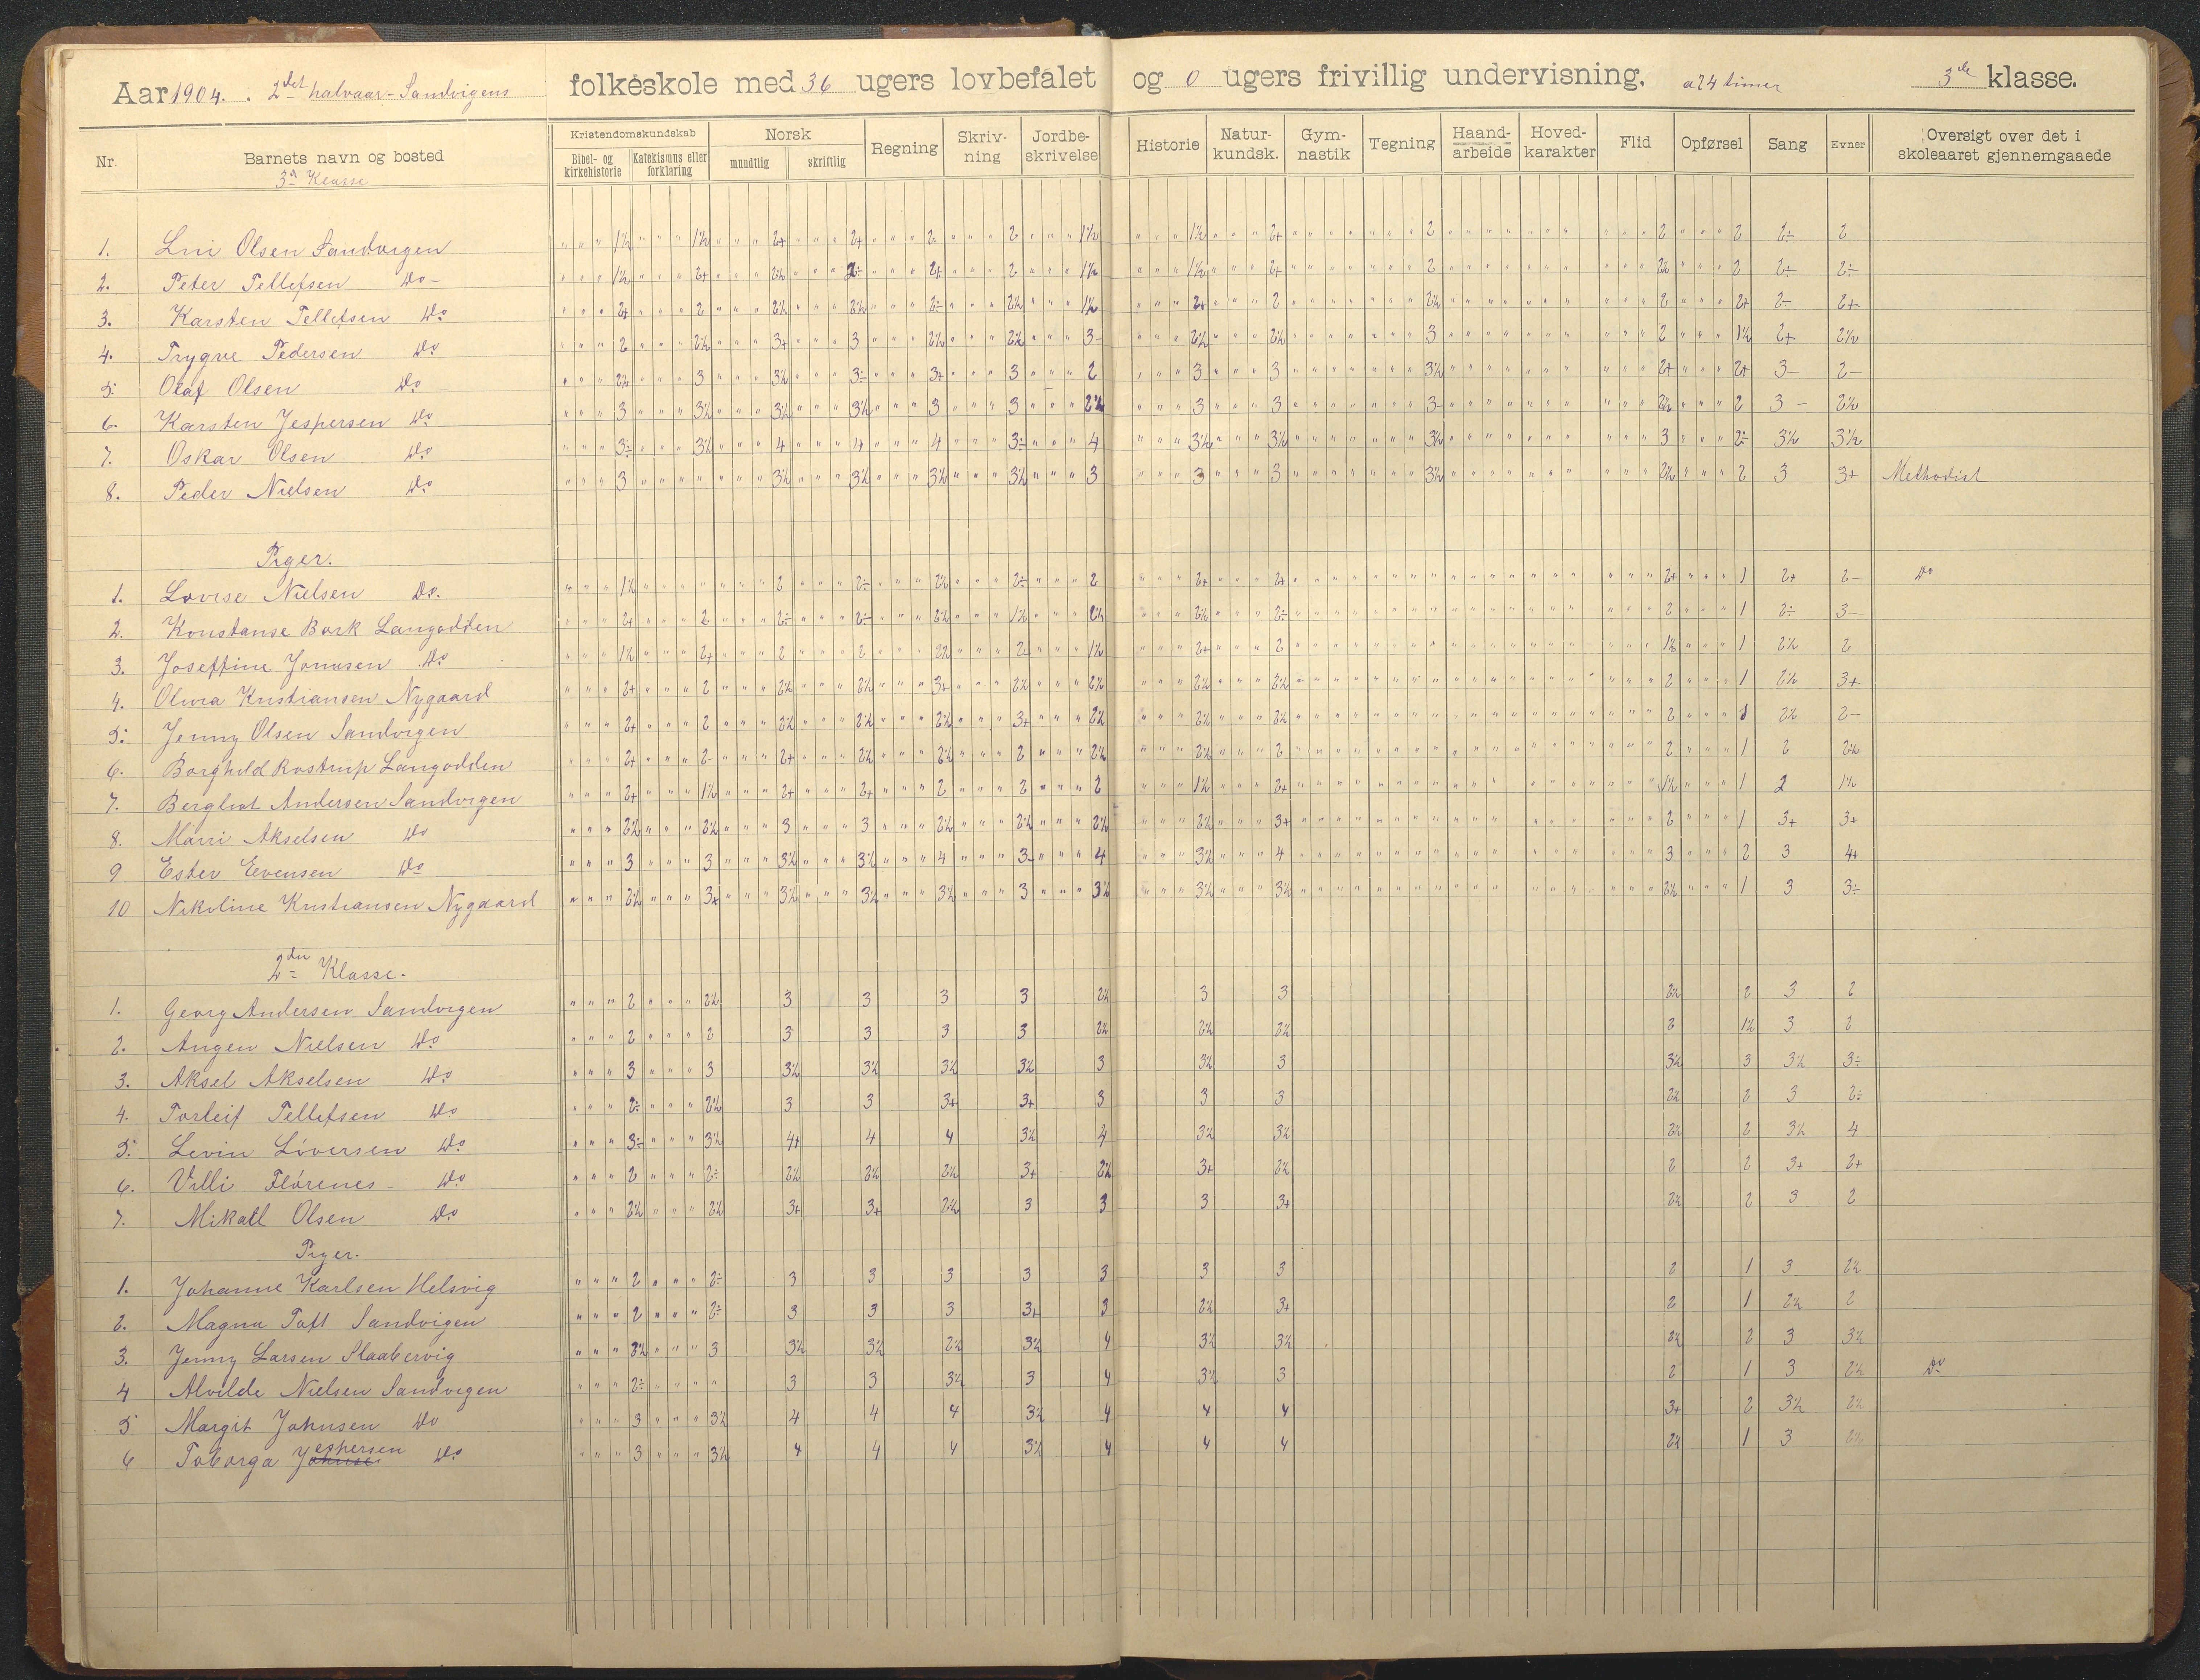 Aar 1904. 2det halvaar - Sandvigens folkeskole med 36 ugers lovbefalet og 0 ugers frivillig undervisning. a 24 timer 3die klasse.
Nr. Barnets navn og bosted Kristendomskundskab Bibel- og kirkehistorie Katekismus eller forklaring Norsk mundtlig skriftlig Regning Skriv-ning Jordbe-skrivelse Historie Natur-kundsk. Gym-nastik Tegning Haand-arbeide Hoved-karakter Flid Opførsel Sang Evner Oversigt over det i skoleaaret gjennemgaaede
3die Klasse
1. Olsen Sandvigen 1½ 1½ 2+ 2+ 2 2 1½ 1½ 2+ 2 2 2 2÷ 2
2. Peter Tellefsen Do - 1½ 2+ 2½ 2÷ 2+ 2 1½ 1½ 2+ 2 2½ 2 2+ 2÷
3. Karsten Tellefsen Do 2+ 2 2½ 2½ 2÷ 2½ 1½ 2+ 2 2½ 2 2+ 2- 2+
4. Trygve Pedersen Do 2 2½ 3+ 3 2½ 2½ 3- 2½ 2½ 3 2 1½ 2+ 2½
5. Olaf Olsen Do 2½ 3 3½ 3÷ 3+ 3 2 3 3 3½ 2+ 2+ 3- 2-
6. Karsten Jespersen Do 3 3½ 3½ 3½ 3 3 2½ 3 3 3- 2½ 2 3- 2½
7. Oskar Olsen Do 3÷ 3½ 4 4 4 3÷ 4 3½ 3½ 3½ 3 2÷ 3½ 3½
8. Peder Nielsen Do 3 3½ 3½ 3½ 3½ 3 3 3 3½ 2½ 2 3 3+ Methodist
Piger.
1. Lovise Nielsen Do. 1½ 2 2÷ 2½ 2÷ 2 2+ 2+ 2+ 1 2+ 2- Do
2. Konstanse Bork Langodden 2+ 2 2÷ 2÷ 2½ 1½ 2½ 2½ 2÷ 2 1 2÷ 3-
3. Joseffine Jonnsen Do 1½ 2+ 2 2 2½ 2- 1½ 2+ 2 1½ 1 2½ 2
4. Olivia Kristiansen Nygaard 2+ 2 2½ 2½ 3+ 2½ 2½ 2½ 2½ 2 1 2½ 3+
5. Jenny Olsen Sandvigen 2+ 2 2½ 2½ 2½ 3+ 2½ 2½ 2½ 2 1 2½ 2-
6. Borghild Rostrup Langodden 2+ 2- 2+ 2½ 2½ 2 2½ 2½ 2 2 1 2 2½
7. Bergliot Andersen Sandvigen 2+ 1½ 2+ 2+ 2 2 2 1½ 2+ 1½ 1 2 1½
8. Marri Akselsen Do 2½ 2½ 3 3 2½ 2½ 2½ 2½ 3+ 2 1 3+ 3+
9 Ester Evensen Do 3 3 3½ 3½ 4 3- 4 3½ 4 3 2 3 4+
10 Nikoline Kristiansen Nygaard 2½ 3+ 3½ 3½ 3½ 3 3½ 3½ 3½ 2½ 1 3 3÷
2den Klasse.
1. Georg Andersen Sandvigen 2 2½ 3 3 3 3 2½ 3 3 2½ 2 3 2
2. Angen Nielsen Do 2 2 3 3 3 3 2½ 2½ 2½ 2 1½ 3 2
3. Aksel Akselsen Do 3 3 3½ 3½ 3½ 3½ 3 3½ 3 3½ 3 3½ 3÷
4. Torleif Tellefsen Do 2÷ 2½ 3 3 3+ 3+ 3 3 3 2½ 2 3 2÷
5. Levin Löversen Do 3÷ 3½ 4+ 4 4 3½ 4 3½ 3½ 2½ 2 3½ 4
6. Villi Flörenes Do 2 2÷ 2½ 2½ 2½ 3+ 2½ 3+ 2½ 2 2 3+ 2+
7. Mikael Olsen Do 2½ 2½ 3+ 3+ 2½ 3 3 3 3+ 2½ 2 3 2
Piger.
1. Johanne Karlsen Helsvig 2 2÷ 3 3 3 3 3 3 3 2 1 3 2½
2. Magna Toft Sandvigen 2 2÷ 3 3 3 3+ 3 2½ 3+ 2 1 2½ 2
3. Jenny Larsen Slaabervig 3½ 3 3½ 3½ 2½ 3½ 4 3½ 3½ 2½ 2 3 3½
4 Alvilde Nielsen Sandvigen 2÷ 3 3 3½ 3 4 3½ 3 2 1 3 2½ Do
5 Margit Johnsen Do 3 3½ 4 4 4 3½ 4 4 4 3+ 2 3½ 2½
6 Toborga Jespersen Do 3 3½ 4 4 4 3½ 4 4 4 2½ 1 3 2½